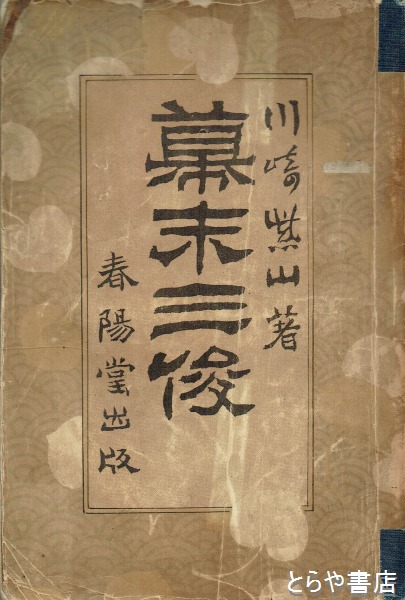 川崎紫山著
幕末三俊
春陽堂出版
とらや書店